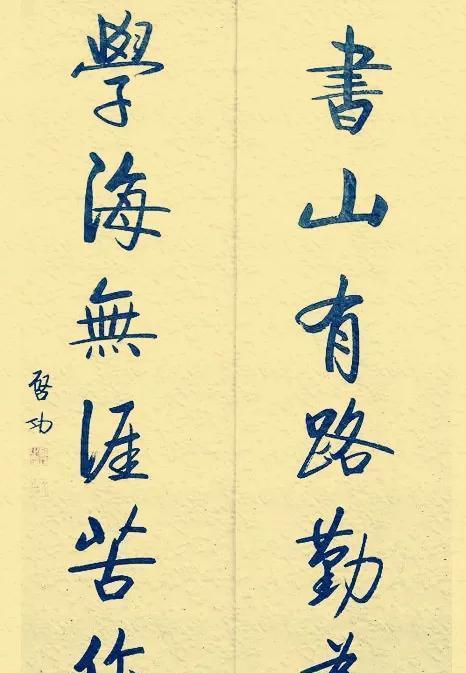 書山有路勤
學海無涯苦作
啓功